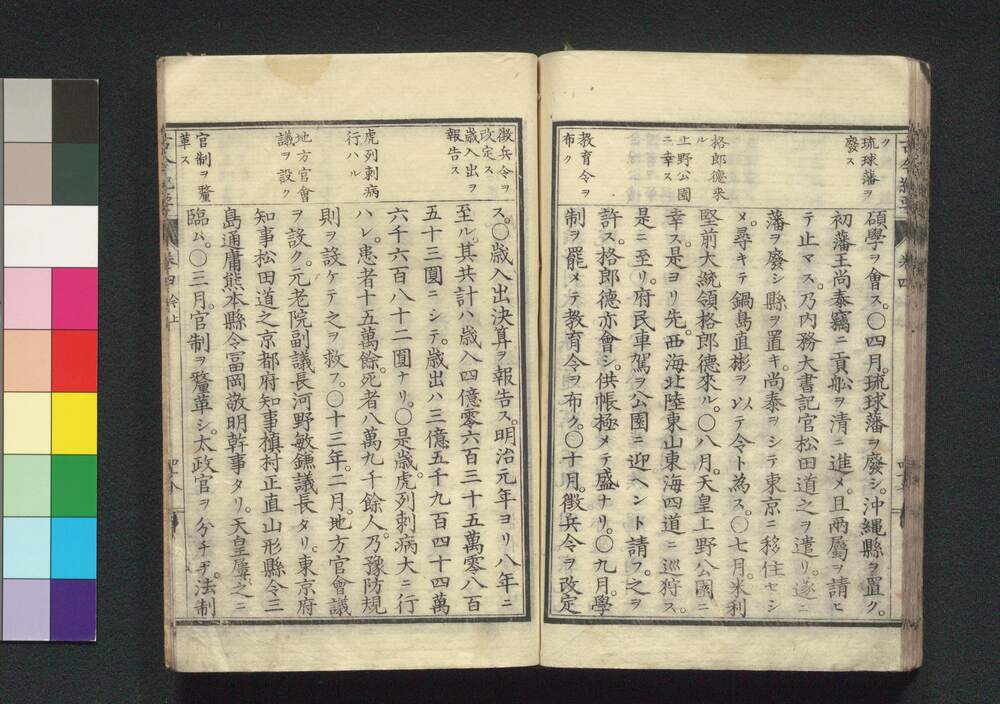 ク
琉球藩ヲ
廢ス
格郎德來
ル
上野公園
ニ幸ス
教育令ヲ
布ク
碩學ヲ會ス。〇四月。琉球藩ヲ廢シ。沖繩縣ヲ置ク。
初藩王尚泰竊ニ貢舩ヲ清ニ進メ。且兩屬ヲ請ヒ
テ止マス。乃内務大書記官松田道之ヲ遣リ。遂ニ
藩ヲ廢シ縣ヲ置キ。尚泰ヲシテ東京ニ移住セシ
メ。尋キテ鍋島直彬ヲ以テ令ト為ス。〇七月。米利
堅前大統領格郎德來ル。〇八月。天皇上野公園ニ
幸ス。是ヨリ先。西海北陸東山東海四道ニ巡狩ス。
是ニ至リ。府民車駕ヲ公園ニ迎ヘント請フ。之ヲ
許ス。格郎德亦會シ。供帳極メテ盛ナリ。〇九月。學
制ヲ罷メテ教育令ヲ布ク。〇十月。徴兵令ヲ改定
徴兵令ヲ
改定ス
歳入出ヲ
報告ス
虎列剌病
行ハル
地方官會
議ヲ設ク
官制ヲ釐
革ス
ス。〇歳入出決算ヲ報告ス。明治元年ヨリ八年ニ
至ル。其共計ハ歳入四億零六百三十五萬零八百
五十三圓ニシテ。歳出ハ三億五千九百四十四萬
六千六百八十二圓ナリ。〇是歳。虎列剌病大ニ行
ハレ。患者十五萬餘。死者八萬九千餘人。乃豫防規
則ヲ設ケテ之ヲ救フ。〇十三年。二月。地方官會議
ヲ設ク。元老院副議長河野敏鎌議長タリ。東京府
知事松田道之京都府知事槇村正直山形縣令三
島通庸熊本縣令冨岡敬明幹事タリ。天皇屢之ニ
臨ム。〇三月。官制ヲ釐革シ。太政官ヲ分チヂ。法制